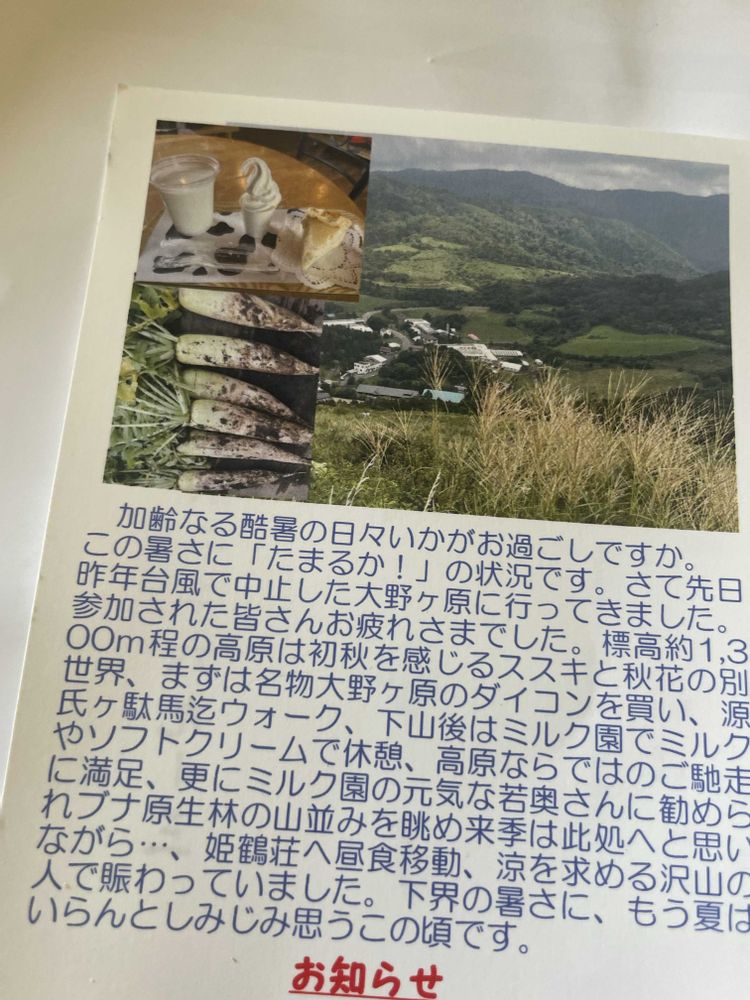 加齢なる酷暑の日々いかがお過ごしですか。
この暑さに「たまるか！」の状況です。さて先日
昨年台風で中止した大野ヶ原に行ってきました。
参加された皆さんお疲れさまでした。標高約1,3
00m程の高原は初秋を感じるススキと秋花の別
世界、まずは名物大野ヶ原のダイコンを買い、源
氏ヶ駄馬迄ウォーク、下山後はミルク園でミルク
やソフトクリームで休憩、高原ならではのご馳走
に満足、更にミルク園の元気な若奥さんに勧めら
れブナ原生林の山並みを眺め来季は此処へと思い
ながら…、姫鶴荘へ昼食移動、涼を求める沢山の
人で賑わっていました。下界の暑さに、もう夏は
いらんとしみじみ思うこの頃です。
お知らせ